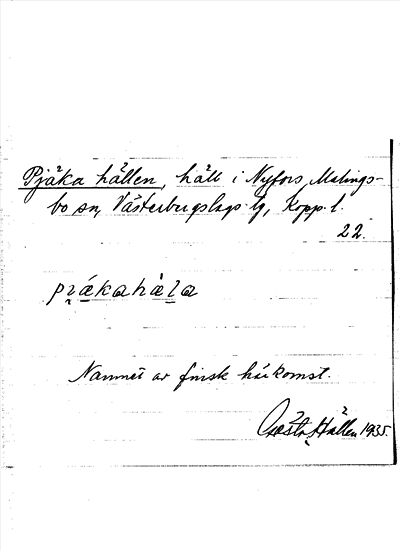 Pjäka hällen, häll i Nyfors Malings-
bo sn, Västerbergslags tg, Kopp. l.
22.
pi̯äkahäla
Namnet av finsk härkomst.
Gösta Hällen 1935.